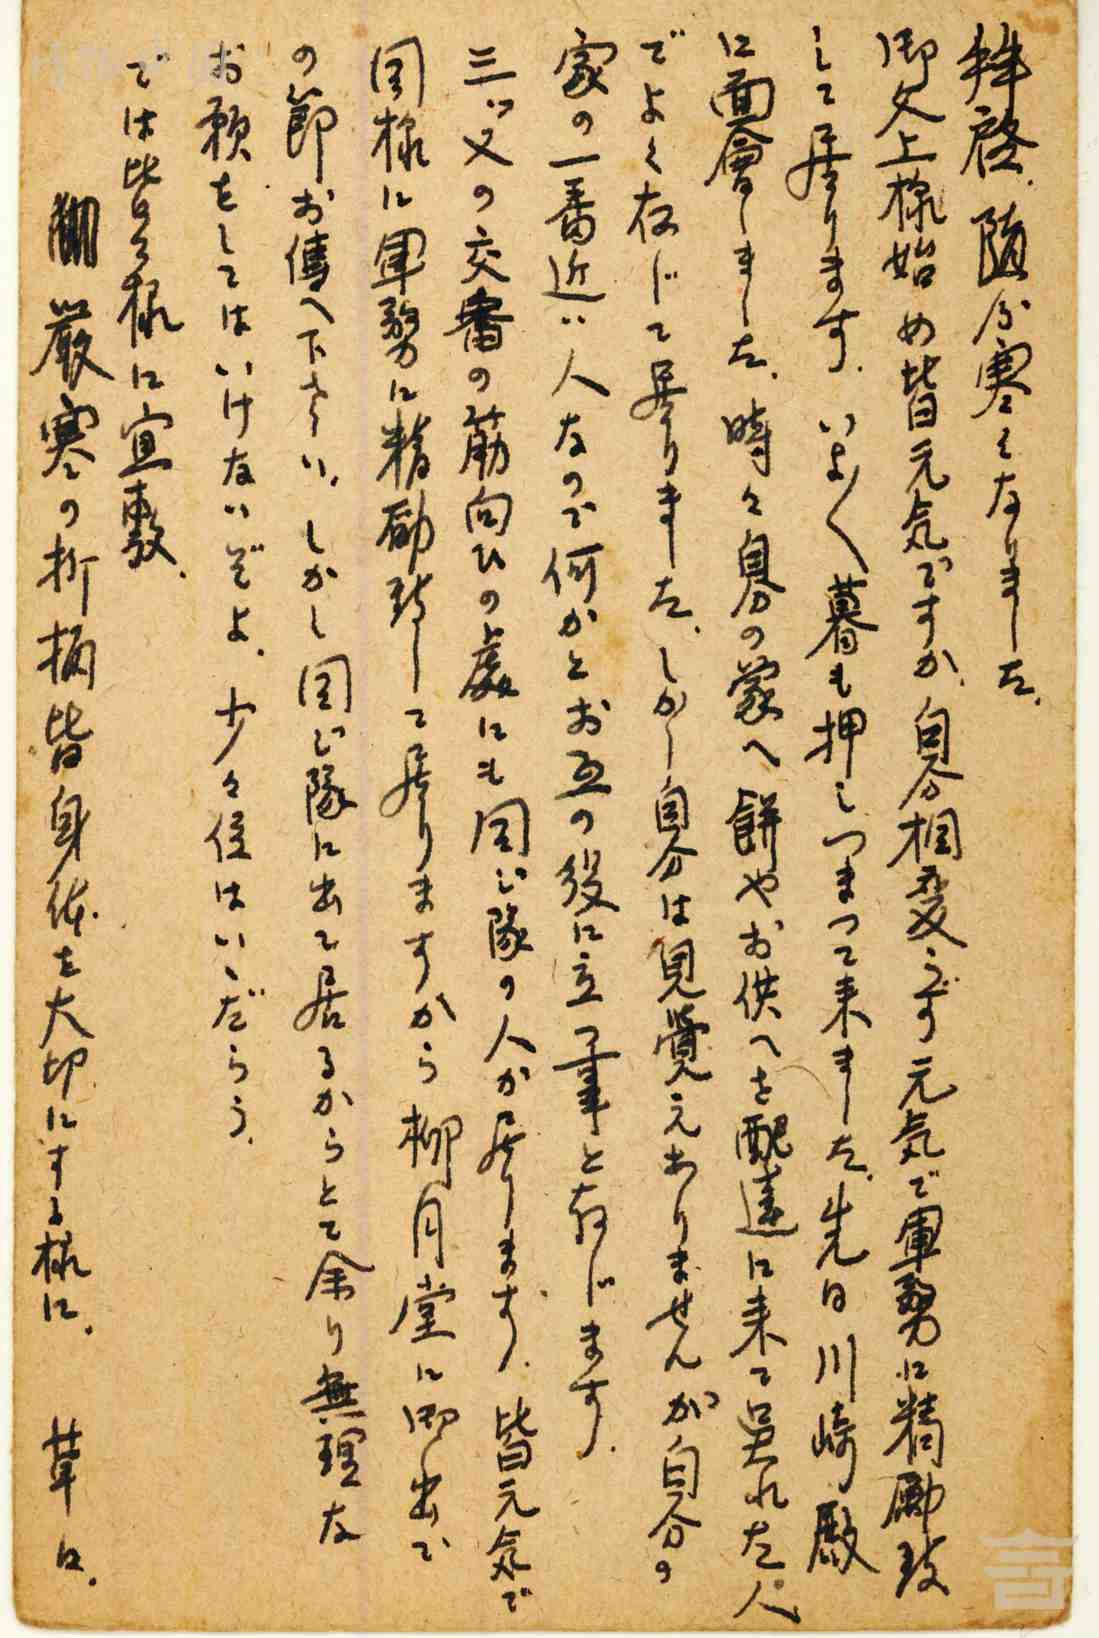 拝啓、随分寒くなりました。
御父上様始め皆元気ですか、自分相変らず元気で軍務に精励致
して居ります、いよ〱暮も押しつまつて来ました、先日川崎殿
に面會しました、時々自分の家へ餅やお供へを配達に来て呉れた人
でよく存じて居りました、しかし自分は見覚えありませんが自分の
家の一番近い人なので何かとお互の役に立つ事と存じます、
三ッ又の交番の筋向ひの處にも同じ隊の人が居ります、皆元気で
同様に軍務に精励致して居りますから柳月堂に御出で
の節お傳へ下さい、しかし同じ隊に出て居るからとて余り無理な
お願をしてはいけないぞよ、少々位はいゝだらう、
では皆々様に宜敷、
厳寒の折柄皆身体を大切にする様に、 草々、